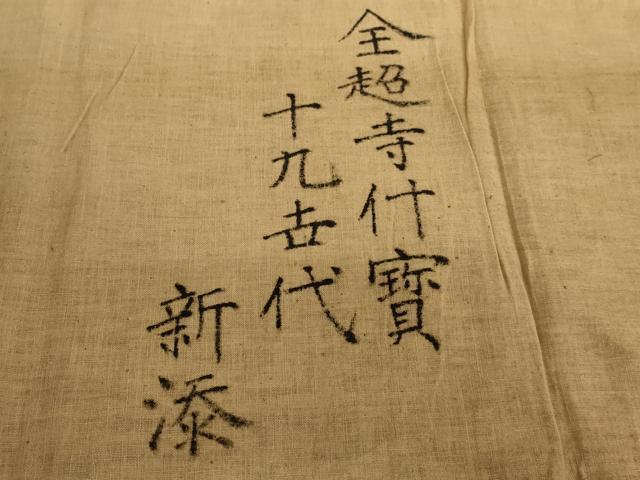 全超寺什寳
十九世代
新添